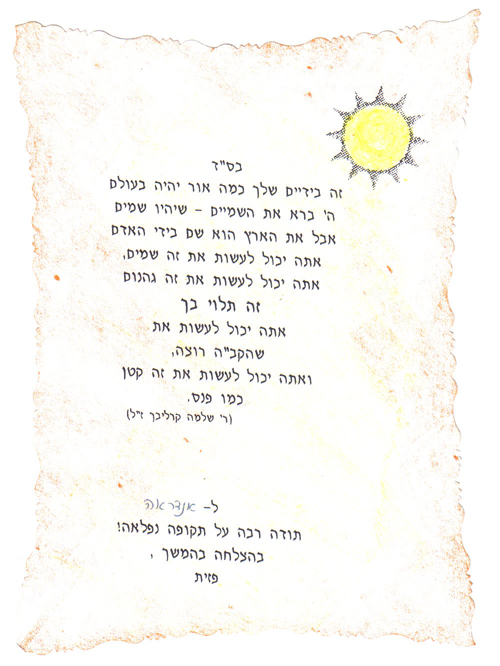 בס"ד
זה בידיים שלך כמה אור יהיה בעולם
ה' ברא את השמיים - שיהיו שמים
אבל את הארץ הוא שם בידי האדם
אתה יכול לעשות את זה שמים,
אתה יכול לעשות את זה גהנום
זה תלוי בך
אתה יכול לעשות את
שהקב"ה רוצה,
ואתה יכול לעשות את זה קטן
כמו פנס.
(ר' שלמה קרליבך ז"ל)
ל- אנדראה
תודה רבה על תקופה נפלאה!
בהצלחה בהמשך ,
פזית